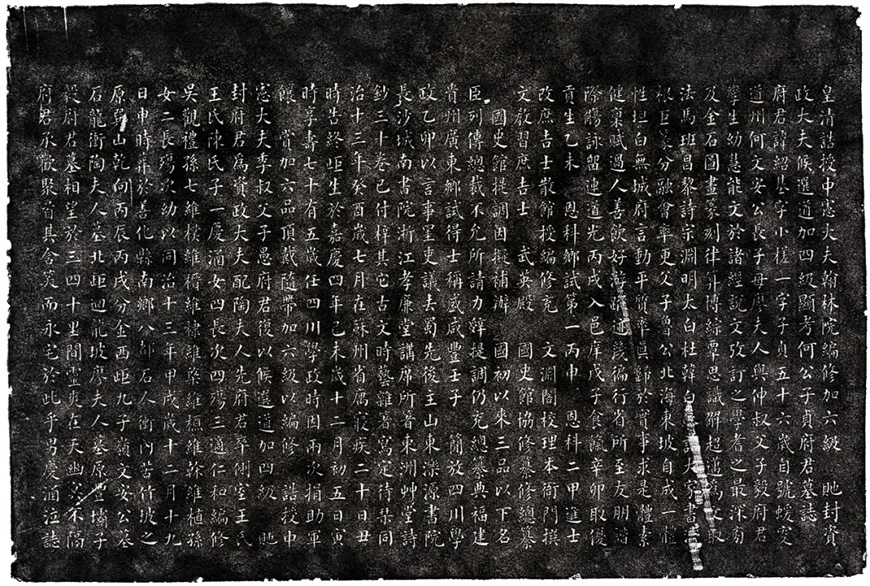 皇清誥授中憲大夫翰林院編修加六級 貤封資
政大夫候選道加四級顯考何公子貞府君墓誌
府君諱紹基字小槎一字子貞五十六歲自號蝯叟
道州何文安公長子母廖夫人與仲叔父子毅府君
孿生幼慧能文於諸經說文攷訂之學耆之最深旁
及金石圖畫篆刻律算博綜覃思識解超邁為文取
法馬班昌黎詩宗淵明太白杜韓白蘇諸大家書法
根巨篆分融會率更父子魯公北海東坡自成一體
性坦白無城府言動平質率真歸於實事求是體素
健稟賦過人善飲好游踪迹幾徧行省所至友朋
際觴詠留連道光丙戌入邑庠戊子食餼辛卯取優
貢生乙未 恩科鄉試第一丙申 恩科二甲進士
改庶吉士散館授編修充 文淵閣校理本衙門撰
文教習庶吉士 武英殿 國史館協修纂修總纂
國史館提調因擬補辦 國初以來三品以下名
臣列傳總裁不允所請力辭提調仍充總纂典福建
貴州廣東鄉試得士稱盛咸豐壬子 簡放四川學
政乙卯以言事罣吏議去蜀先後主山東濼源書院
長沙城南書院浙江孝廉堂講席所著東洲艸堂詩
鈔三十卷已付梓其它古文時藝雜著寫定待栞同
治十三年癸酉歲七月在蘇州省寓疾二十日丑
時告終距生於嘉慶四年己未歲十二月初五日寅
時享壽七十有五歲任四川學政時因兩次捐助軍
餉 賞加六品頂戴隨帶加六級以編修 誥授中
憲大夫季叔父子愚府君復以候選道加四級 貤
封府君為資政大夫配陶夫人先府君卒側室王氏
王氏陳氏子一慶涵女四長次四殤三適仁和編修
吳觀禮孫七維樸維穭維棣維棨維楨維榦維植孫
女二長殤次幼以同治十三年甲戌歲十二月十九
日申時葬於善化縣南鄉八都石人衝內苦竹坡之
原辛山乾向丙辰丙戌分金西距九子嶺文安公墓
石龍衝陶夫人墓北距迴龍坡廖夫人墓原豐壩子
毅府君墓相望於三四十里間靈爽在天幽冥不隔
府君承歡聚首其含笑而永宅於此乎男慶涵泣誌